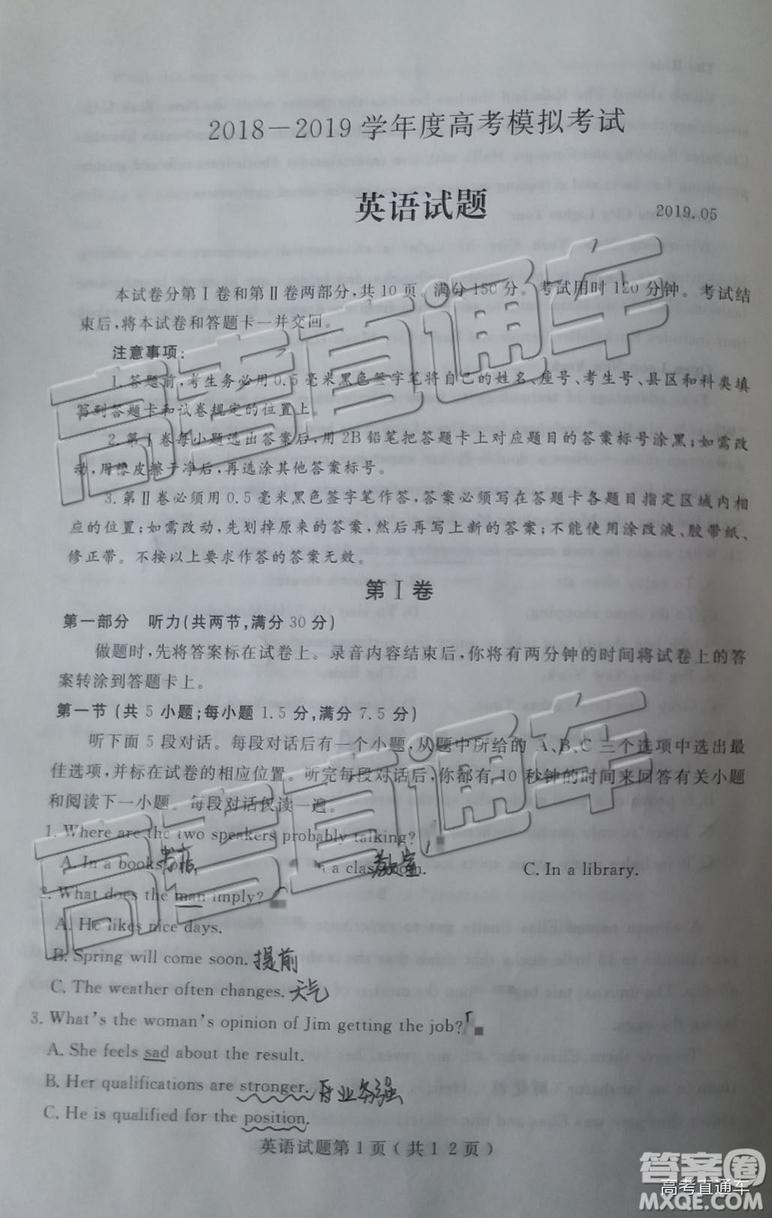 2018－2019 学年度高考模拟考试
英语试题
2019.05
本试卷分第Ⅰ卷和第Ⅱ卷两部分,共 10 页。满分 150 分。考试用时 120 分钟。考试结
束后,将本试卷和答题卡一并交回。
注意事项:
1.答题前,考生务必用0.5毫米黑色签字笔将自己的姓名、座号、考生号、县区和科类填
写到答题卡和试卷规定的位置上。
2.第Ⅰ卷每小题选出答案后,用2B铅笔把答题卡上对应题目的答案标号涂黑;如需改
动,用橡皮擦干净后,再选涂其他答案标号。
3.第Ⅱ卷必须用0.5毫米黑色签字笔作答,答案必须写在答题卡各题目指定区域内相
应的位置;如需改动,先划掉原来的答案,然后再写上新的答案;不能使用涂改液、胶带纸、
修正带。不按以上要求作答的答案无效。
第Ⅰ卷
第一部分 听力(共两节,满分30分)
做题时,先将答案标在试卷上。录音内容结束后,你将有两分钟的时间将试卷上的答
案转涂到答题卡上。
第一节 (共 5 小题;每小题 1.5 分,满分 7.5 分)
听下面 5 段对话。每段对话后有一个小题,从题中所给的 A、B、C 三个选项中选出最
佳选项,并标在试卷的相应位置。听完每段对话后,你都有 10 秒钟的时间来回答有关小题
和阅读下一小题。每段对话仅读一遍。
1. Where are the two speakers probably talking?
A. In a books 书店 n a class 教室 om. C. In a library.
2. What does the man imply?
A. He likes nice days.
B. Spring will come soon. 提前
C. The weather often changes. 天气
3. What's the woman's opinion of Jim getting the job?
A. She feels sad about the result.
B. Her qualifications are stronger. 业务强
C. He is qualified for the position.
英语试题第 1 页 ( 共 1 2 页 )
高考直通车
高考直通车
答案圈
MXQE.COM
高考直通车